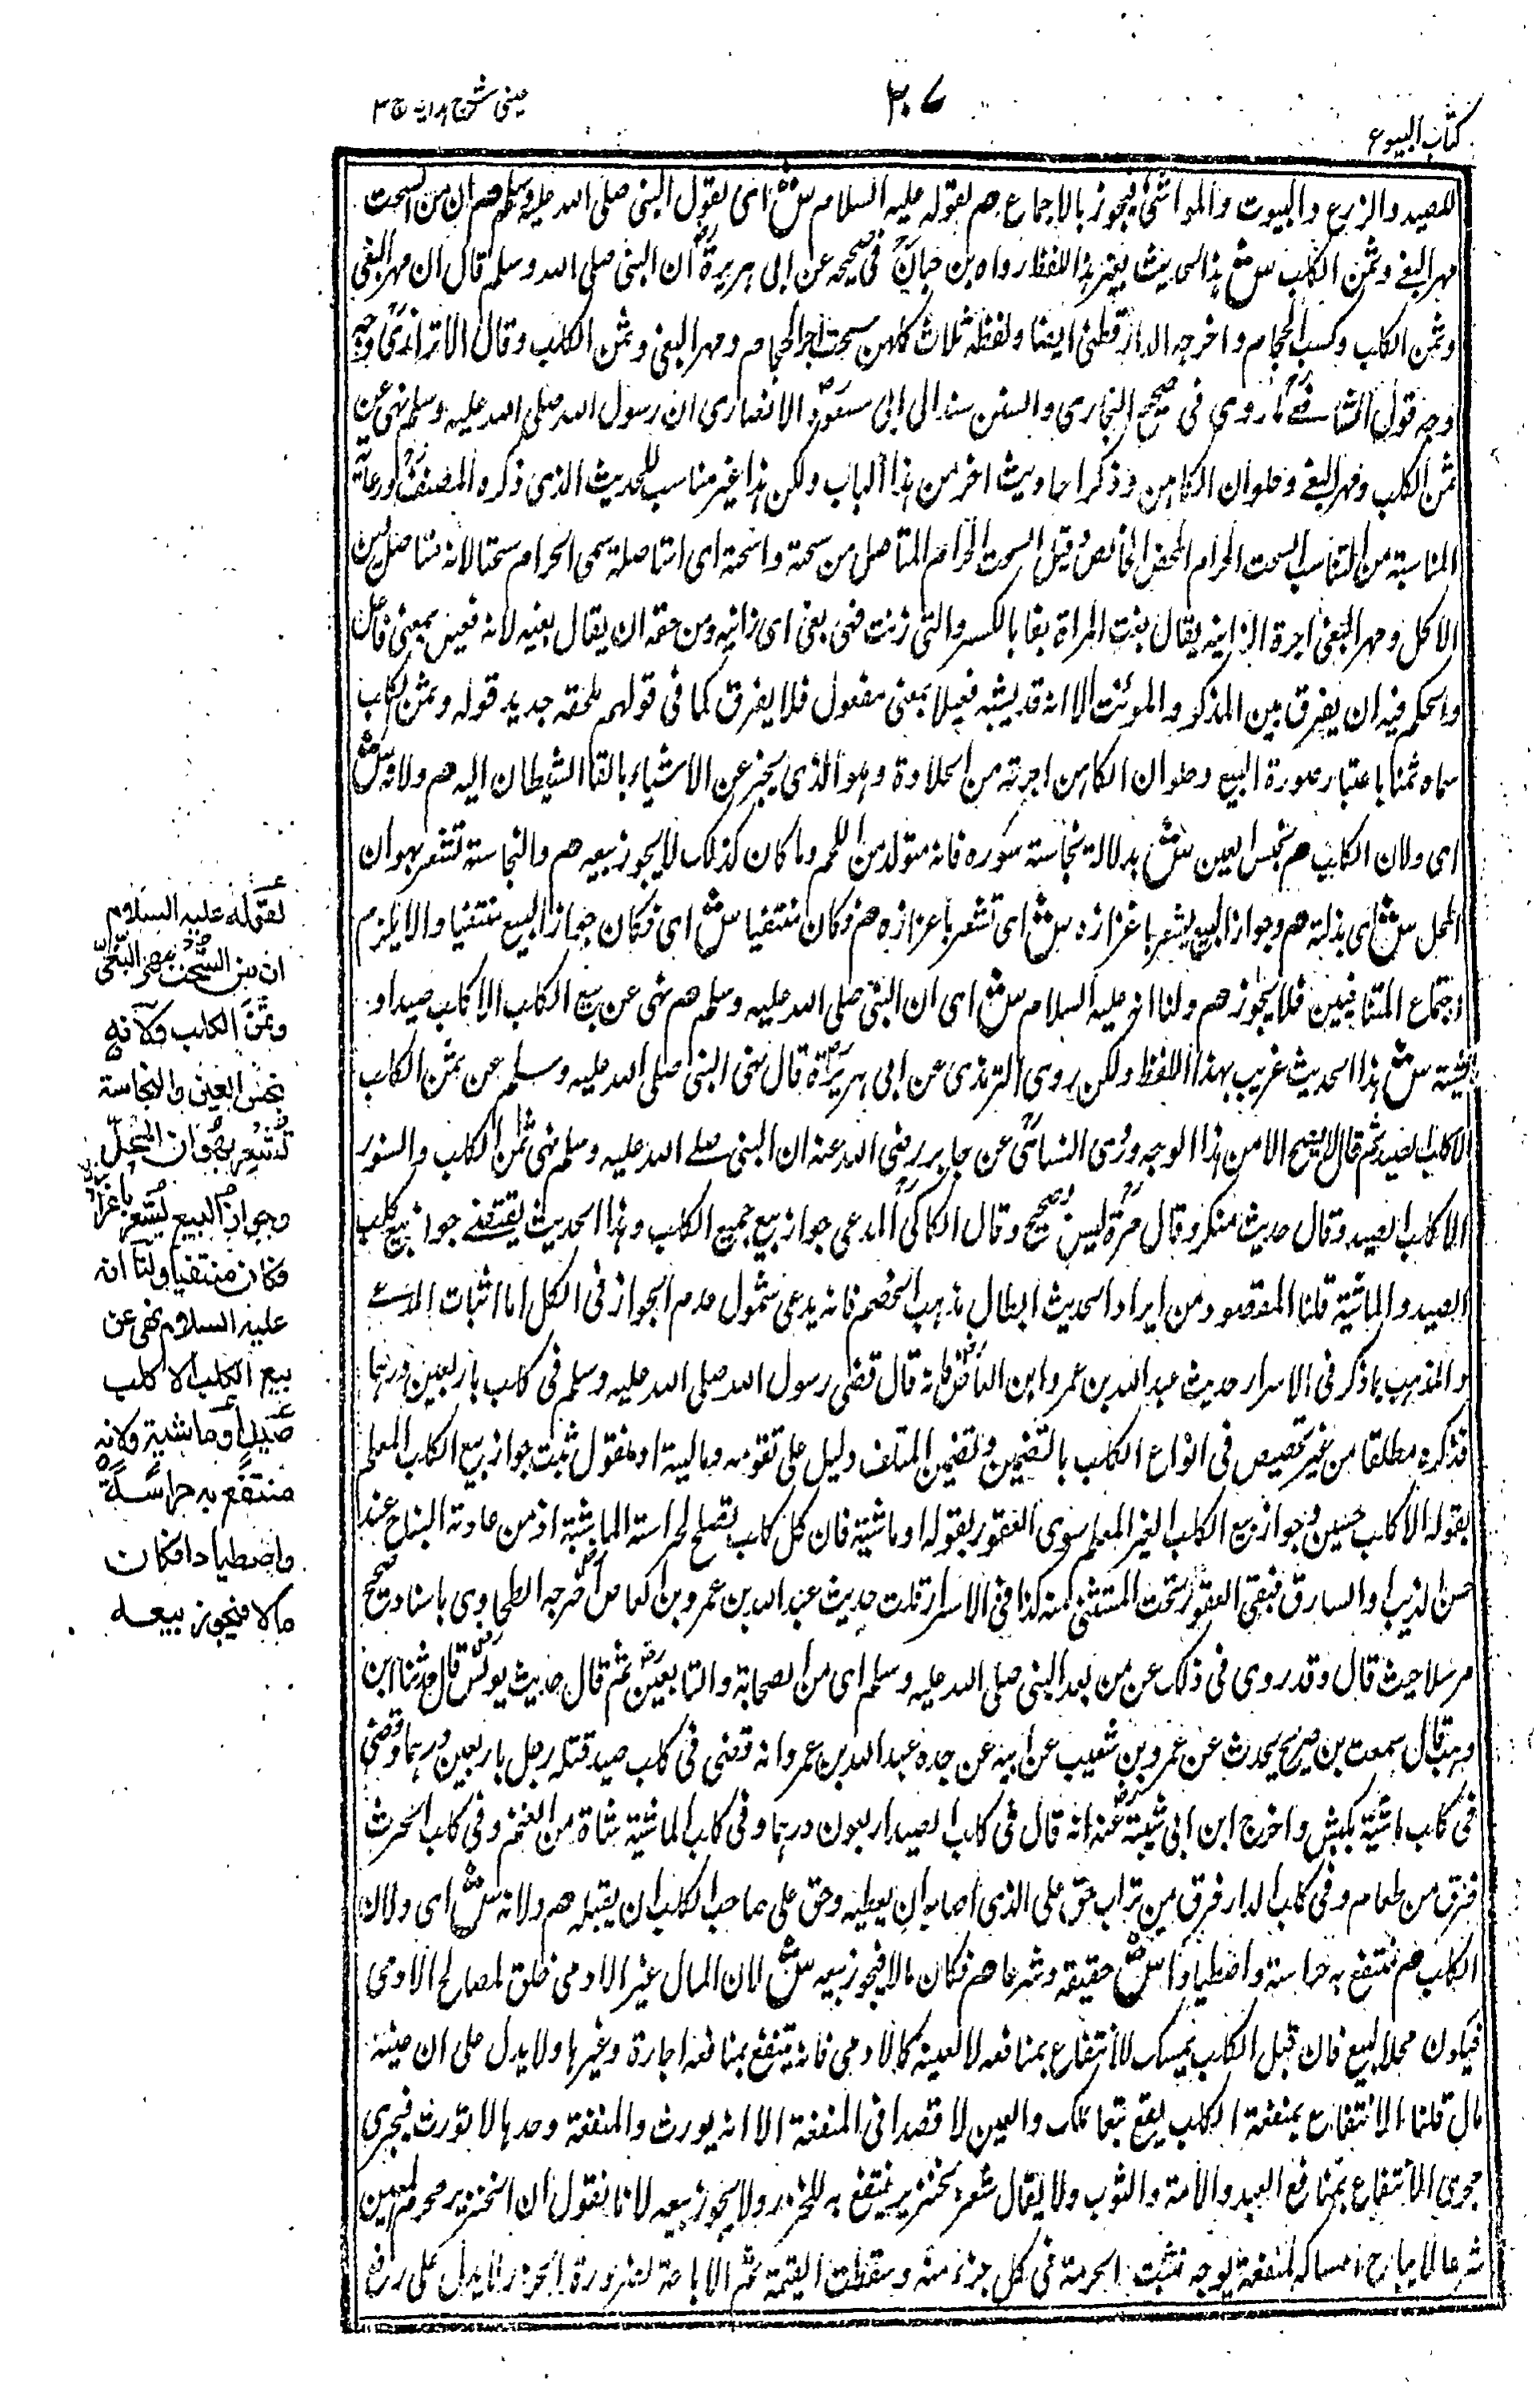 كتاب البيوع
٣٠٧
عينى شرح هدايه ج ٣
للصيد والزرع والبيوت والمواشى يجوز بالاجماع هم لقوله عليه السلام ش اى لقول النبى صلى الله عليه وسلم هم ان من السحت
مهر البغى وثمن الكلب ش هذا الحديث بغير هذا اللفظ رواه بن حبان فى صحيحه عن ابى هريرة ان النبى صلى الله وسلم قال ان مهر البغى
وثمن الكلب وكسب الحجام واخرجه الدارقطنى ايضا ولفظه ثلاث كلهن سحت اجر الحجام ومهر البغى وثمن الكلب وقال الاترازى وجه
وجه قول الشافعى ما روى فى صحيح البخارى والسنن سندا الى ابى مسعود الانصارى ان رسول الله صلى الله عليه وسلم نهى عن
ثمن الكلب ومهر البغى وحلوان الكاهن وذكر احاديث اخر من هذا الباب ولكن هذا غير مناسب للحديث الذى ذكره المصنف ورعاية
المناسبة من التناسب السحت الحرام المحض الخالص وقيل السحت الحرام المتأصل من سحته واسحته اى استاصلة سمى الحرام سحتا لانه يستاصل لمن
الاكل ومهر البغى اجرة الزانية يقال بغت المراة بغا بالكسر والتى زنت فهى بغى اى زانية ومن حقه ان يقال بغيه لانه فعيل بمعنى فاعل
والحكم فيه ان يفرق بين المذكر والمونث الا انه قد يشبه فعيلا بمعنى مفعول فلا يفرق كما فى قولهم ملحفة جديد قوله وثمن الكلب
سماه ثمنا باعتبار صورة البيع وحلوان الكاهن اجرته من الحلاوة وهو الذى يخبر عن الاشياء بالقا الشيطان اليه هم ولانه ش
اى ولان الكلب هم نجس العين ش بدلالة نجاسته سوره فانه متولد من اللحم وما كان كذلك لا يجوز بيعه هم والنجاسة تشعر بهوان
المحل ش اى بذلته هم وجواز البيع يشعر باعزازه ش اى تشعر باعزازه هم فكان منتفيا ش اى فكان جواز البيع منتفيا والا يلزم
اجتماع المتنافيين فلا يجوز هم ولنا انه عليه السلام ش اى ان النبى صلى الله عليه وسلم هم نهى عن بيع الكلب الا كلب صيد او
ماشية ش هذا الحديث غريب بهذا اللفظ ولكن روى الترمذى عن ابى هريرة قال نهى النبى صلى الله عليه وسلم عن ثمن الكلب
الا كلب الصيد ثم قال لا يصح الا من هذا الوجه وروى النسائى عن جابر رضى الله عنه ان النبى صلے الله عليه وسلم نهى ثمن الكلب والسنور
الا كلب الصيد وقال حديث منكر وقال مرة ليس بصحيح وقال الكاكى المدعى جواز بيع جميع الكلب وهذا الحديث يقتضے جواز بيع كلب
الصيد والماشية قلنا المقصود من ايراد الحديث ابطال مذهب الخصم فانه يدعى شمول عدم الجواز فى الكل اما اثبات المدعے
والمذهب بما ذكر فى الاسرار حديث عبد الله بن عمرو ابن العاص فانه قال قضى رسول الله صلى الله عليه وسلم فى كلب باربعين درهما
فذكره مطلقا من غير تخصيص فى انواع الكلب بالتضمين وتضمين المتلف دليل على تقومه وماليته او نقول ثبت جواز بيع الكلب المعلم
بقوله الا كلب صيد وجواز بيع الكلب الغير المعلم سوى العقور بقوله او ماشية فان كل كلب يصلح لحراسة الماشية اذ من عادته النباح عند
حس الذيب او السارق فبقى العقور تحت المستثنى منه كذا فى الاسرار قلت حديث عبد الله بن عمرو بن العاص اخرجه الطحاوى باسناد صحيح
مرسلا حيث قال وقد روى فى ذلك عن من بعد النبى صلى الله عليه وسلم اى من الصحابة والتابعين ثم قال حديث يونس قال حدثنا ابن
وهب قال سمعت بن جريج يحدث عن عمرو بن شعيب عن ابيه عن جده عبد الله بن عمرو انه قضى فى كلب صيد قتله رجل باربعين درهما وقضى
فى كلب ماشية بكبش واخرج ابن ابى شيبة عنه انه قال فى كلب الصيد اربعون درهما وفى كلب الماشية شاة من الغنم وفى كلب الحرث
فرق من طعام وفى كلب الدار فرق من تراب حق على الذى اصابه ان يعطيه وحق على صاحب الكلب ان يقبله هم ولانه ش اى ولان
الكلب هم منتفع به حراسة واصطيادا ش حقيقة وشرعا هم فكان مالا فيجوز بيعه ش لان المال غير الادمى خلق لمصالح الادمى
فيكون محلا للبيع فان قيل الكلب يمسك للانتفاع بمنافعه لا لعينه كالادمى فانه ينتفع بمنافعه اجارة وغيرها ولا يدل على ان عينه
مال قلنا الانتفاع بمنفعة الكلب يقع تبعا لملك والعين لا قصدا فى المنفعة الا انه يورث والمنفعة وحدها لا تورث فيجرى
مجرى الانتفاع بمنافع العبد والامة والثوب ولا يقال شعر الخنزير ينتفع به للخرز ولا يجوز بيعه لانا نقول ان الخنزير محرم العين
شرعا لا يباح امساكه لمنفعة بوجه فثبت الحرمة فى كل جزء منه وسقطت القيمة ثم الاباحة لضرورة الخرز لا يدل على رفع
لقوله عليه السلام
ان من السحت مهر البغى
وثمن الكلب ولانه
نجس العين والنجاسة
تشعر بهوان المحل
وجواز البيع يشعر باعزازه
فكان منتفيا ولنا انه
عليه السلام نهى عن
بيع الكلب الا كلب
صيد او ماشية ولانه
منتفع به حراسة
واصطيادا فكان
مالا فيجوز بيعه